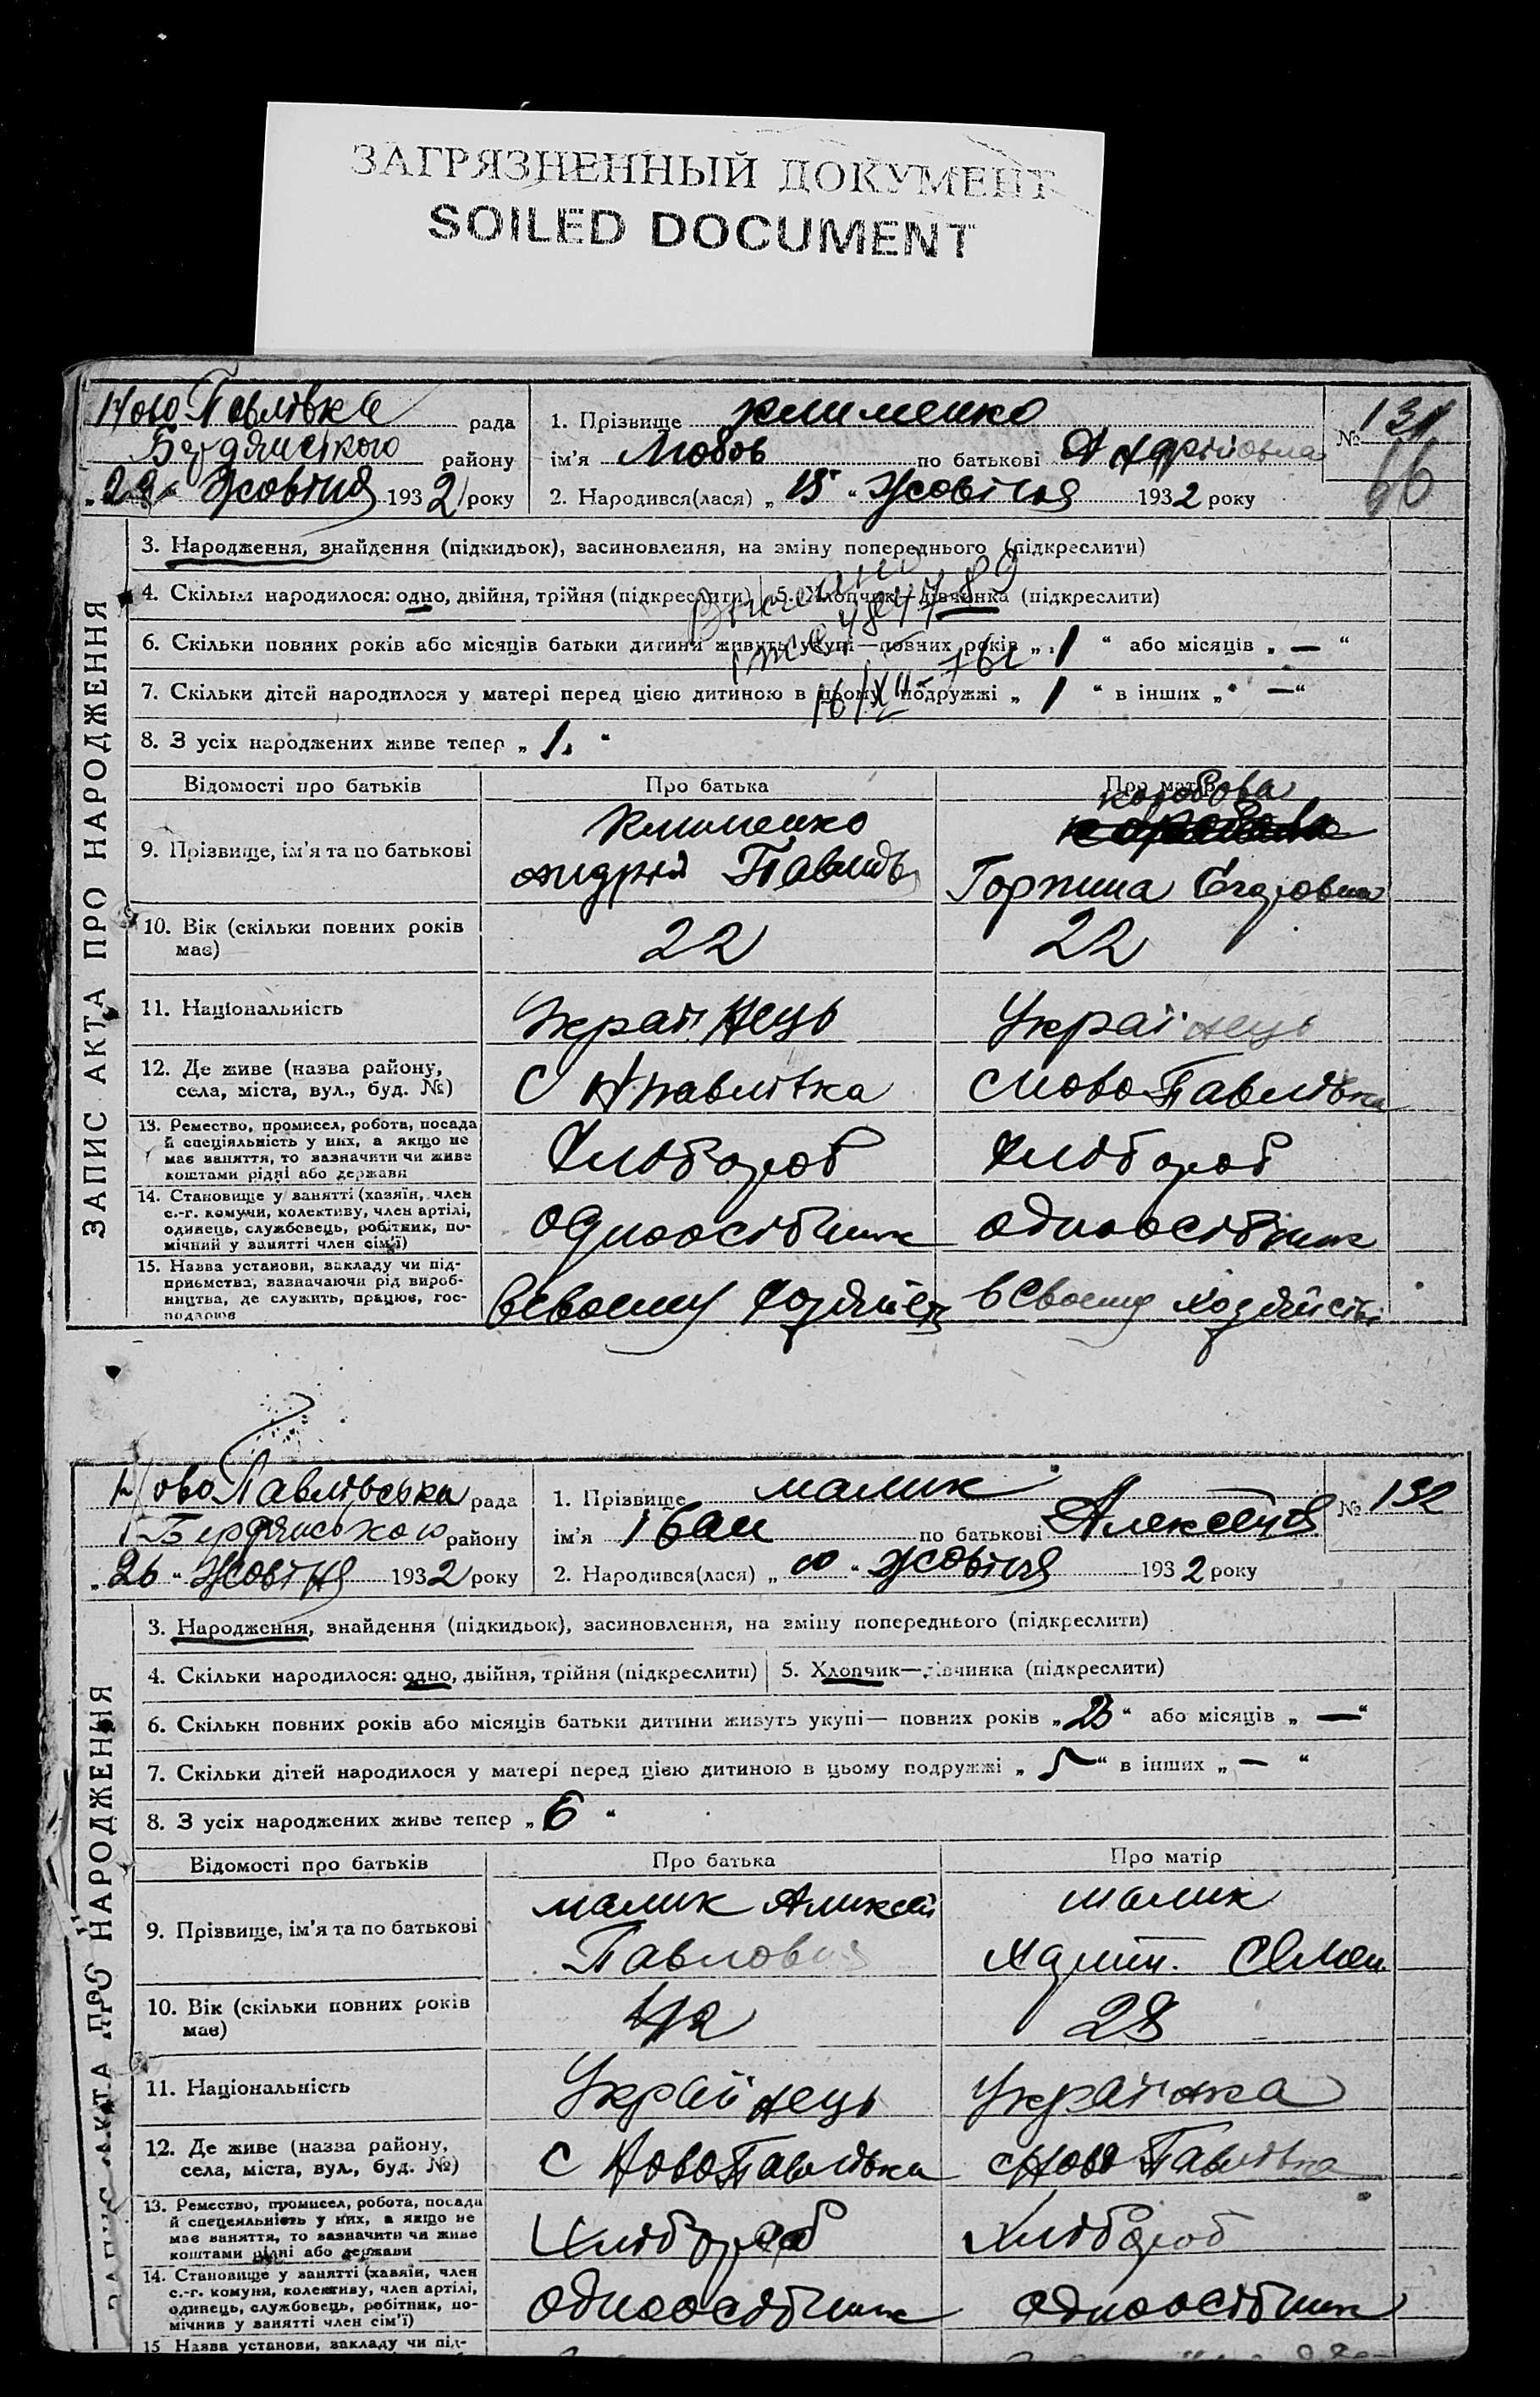 ЗАГРЯЗНЕННЫЙ ДОКУМЕНТ
SOILED DOCUMENT
Ново Павлівка рада
Бердянського району
193 2 року
1. Прізвище Клименко
ім'я Любов по батькові Андріівна
2. Народився(лася) „ 15 “ Жовтня 1932 року
№ 131
66
ЗАПИС АКТА ПРО НАРОДЖЕННЯ
3. Народження, знайдення (підкидьок), засиновлення, на зміну попереднього (підкреслити)
4. Скільки народилося: одно, двійня, трійня (підкреслити) 5. Хлопчик—дівчинка (підкреслити)
6. Скільки повних років або місяців батьки дитини живуть укупі—повних років „ 1 “ або місяців „ — “
7. Скільки дітей народилося у матері перед цією дитиною в цьому подружжі „ 1 “ в інших „ — “
8. З усіх народжених живе тепер „ 1. “
Відомості про батьків Про батька Про матір
9. Прізвище, ім'я та по батькові
Клименко
Андрій
Коробова
10. Вік (скільки повних років має) 22 22
11. Національність Українець Українець
12. Де живе (назва району, села, міста, вул., буд. №)
С Н павлівка
с Ново Павлівка
13. Ремество, промисел, робота, посада й спеціяльність у них, а якщо не має заняття, то зазначити чи живе коштами рідні або держави
Хлібороб Хлібороб
14. Становище у занятті (хазяїн, член с.-г. комуни, колективу, член артілі, одинець, службовець, робітник, помічний у занятті член сім'ї)
одноосібник одноосібник
15. Назва установи, закладу чи підприємства, зазначаючи рід виробництва, де служить, працює, господарює
в своему в своему
Ново Павлівська рада
Бердянського району
„ 26 “ Жовтня 1932 року
1. Прізвище малик
ім'я Іван по батькові
2. Народився(лася) Жовтня 1932 року
№ 132
ЗАПИС АКТА ПРО НАРОДЖЕННЯ
3. Народження, знайдення (підкидьок), засиновлення, на зміну попереднього (підкреслити)
4. Скільки народилося: одно, двійня, трійня (підкреслити) 5. Хлопчик—дівчинка (підкреслити)
6. Скільки повних років або місяців батьки дитини живуть укупі— повних років або місяців „ — “
7. Скільки дітей народилося у матері перед цією дитиною в цьому подружжі „ 5 “ в інших „ — “
8. З усіх народжених живе тепер „ 6 “
Відомості про батьків Про батька Про матір
9. Прізвище, ім'я та по батькові
малик малик
10. Вік (скільки повних років має) 42 28
11. Національність Українець Українка
12. Де живе (назва району, села, міста, вул., буд. №)
С Ново Павлівка с Ново Павлівка
13. Ремество, промисел, робота, посада й спецеяльність у них, а якщо не має заняття, то зазначити чи живе коштами рідні або держави
Хлібороб Хлібороб
14. Становище у занятті (хазяїн, член с.-г. комуни, колективу, член артілі, одинець, службовець, робітник, помічний у занятті член сім'ї)
одноосібник одноосібник
15 Назва установи, закладу чи під-